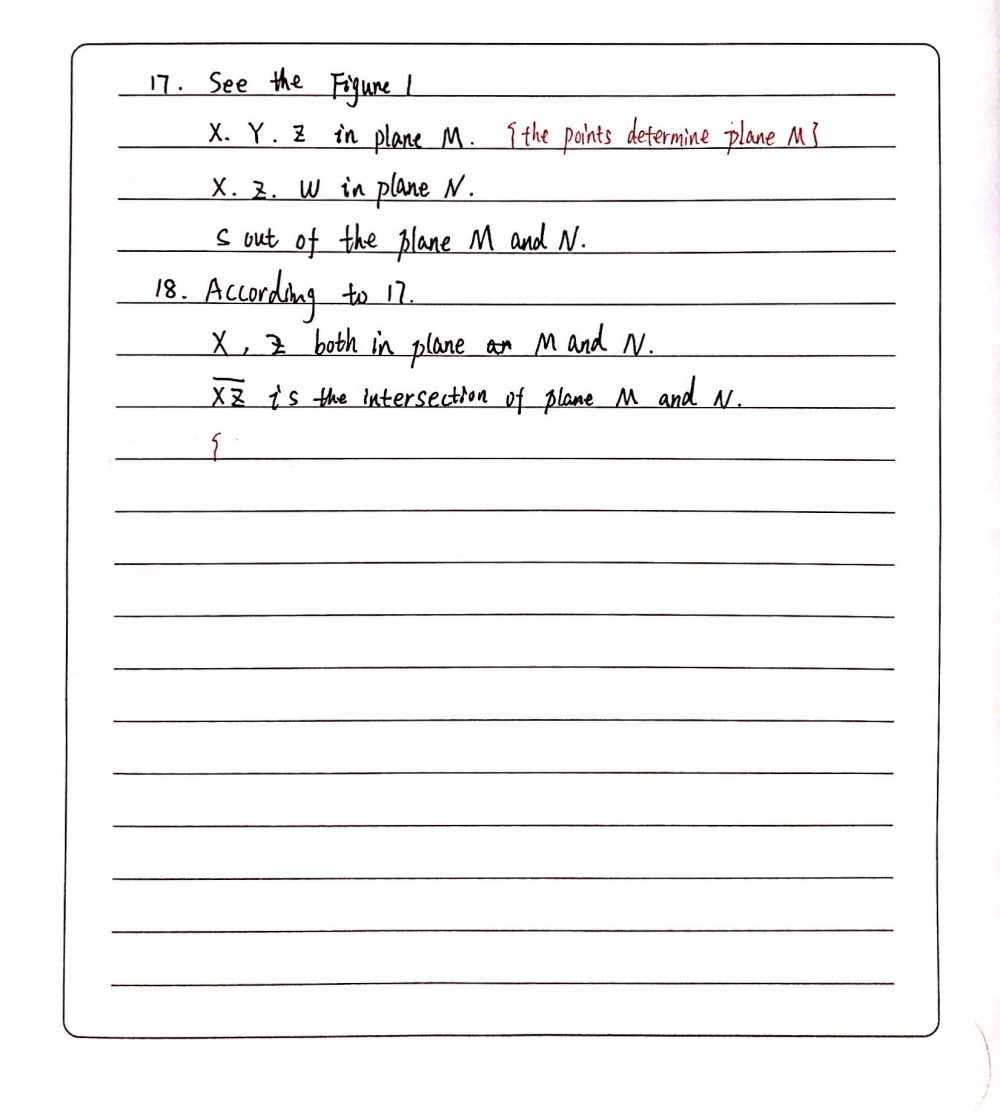 17. See the Figure 1
X. Y. Z in plane M. {the points determine plane M}
X. Z. W in plane N.
S out of the plane M and N.
18. According to 17.
X, Z both in plane M and N.
X̅Z̅ is the intersection of plane M and N.
{